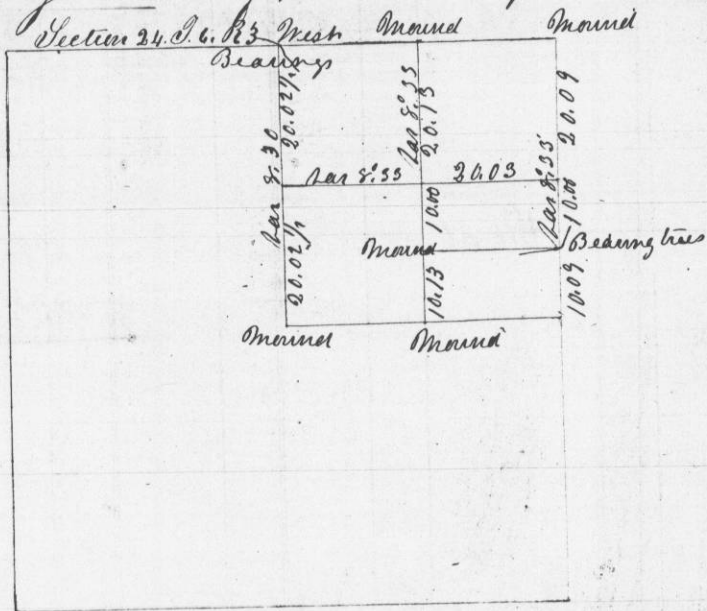 Section 24. T. 6. R3 West
Mound
Mound
Bearings
Var 8.30
20.02½
Var 8.°33
20.13
20.09
Var 8.°33
20.03
Var 8.°33'
10.00
10.00
20.02½
Mound
Bearing trees
10.13
10.09
Mound
Mound